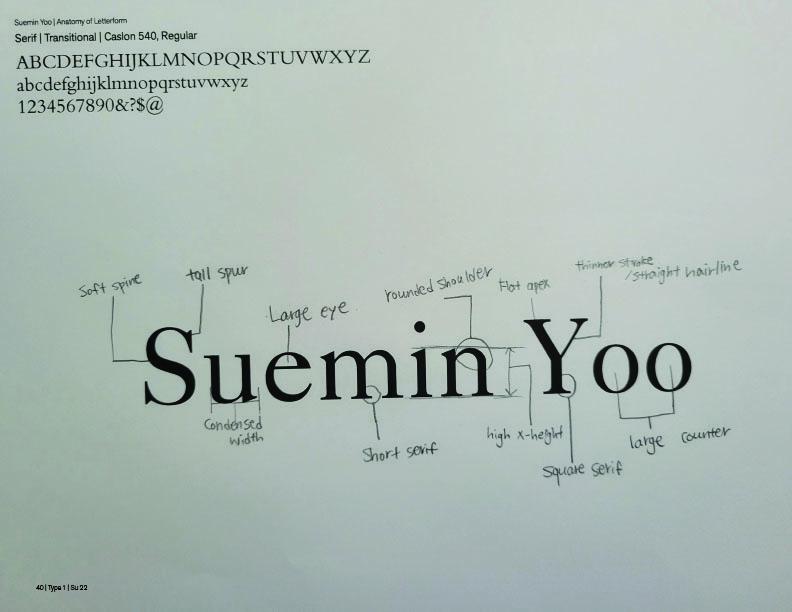 Suemin Yoo | Anatomy of Letterform
Serif | Transitional | Caslon 540, Regular
ABCDEFGHIJKLMNOPQRSTUVWXYZ
abcdefghijklmnopqrstuvwxyz
1234567890&?$@
Soft spine
tall spur
Large eye
rounded shoulder
Flat apex
thinner stroke
/straight hairline
Suemin Yoo
Condensed
width
Short serif
high x-height
square serif
large counter
40 | Type 1 | Su 22